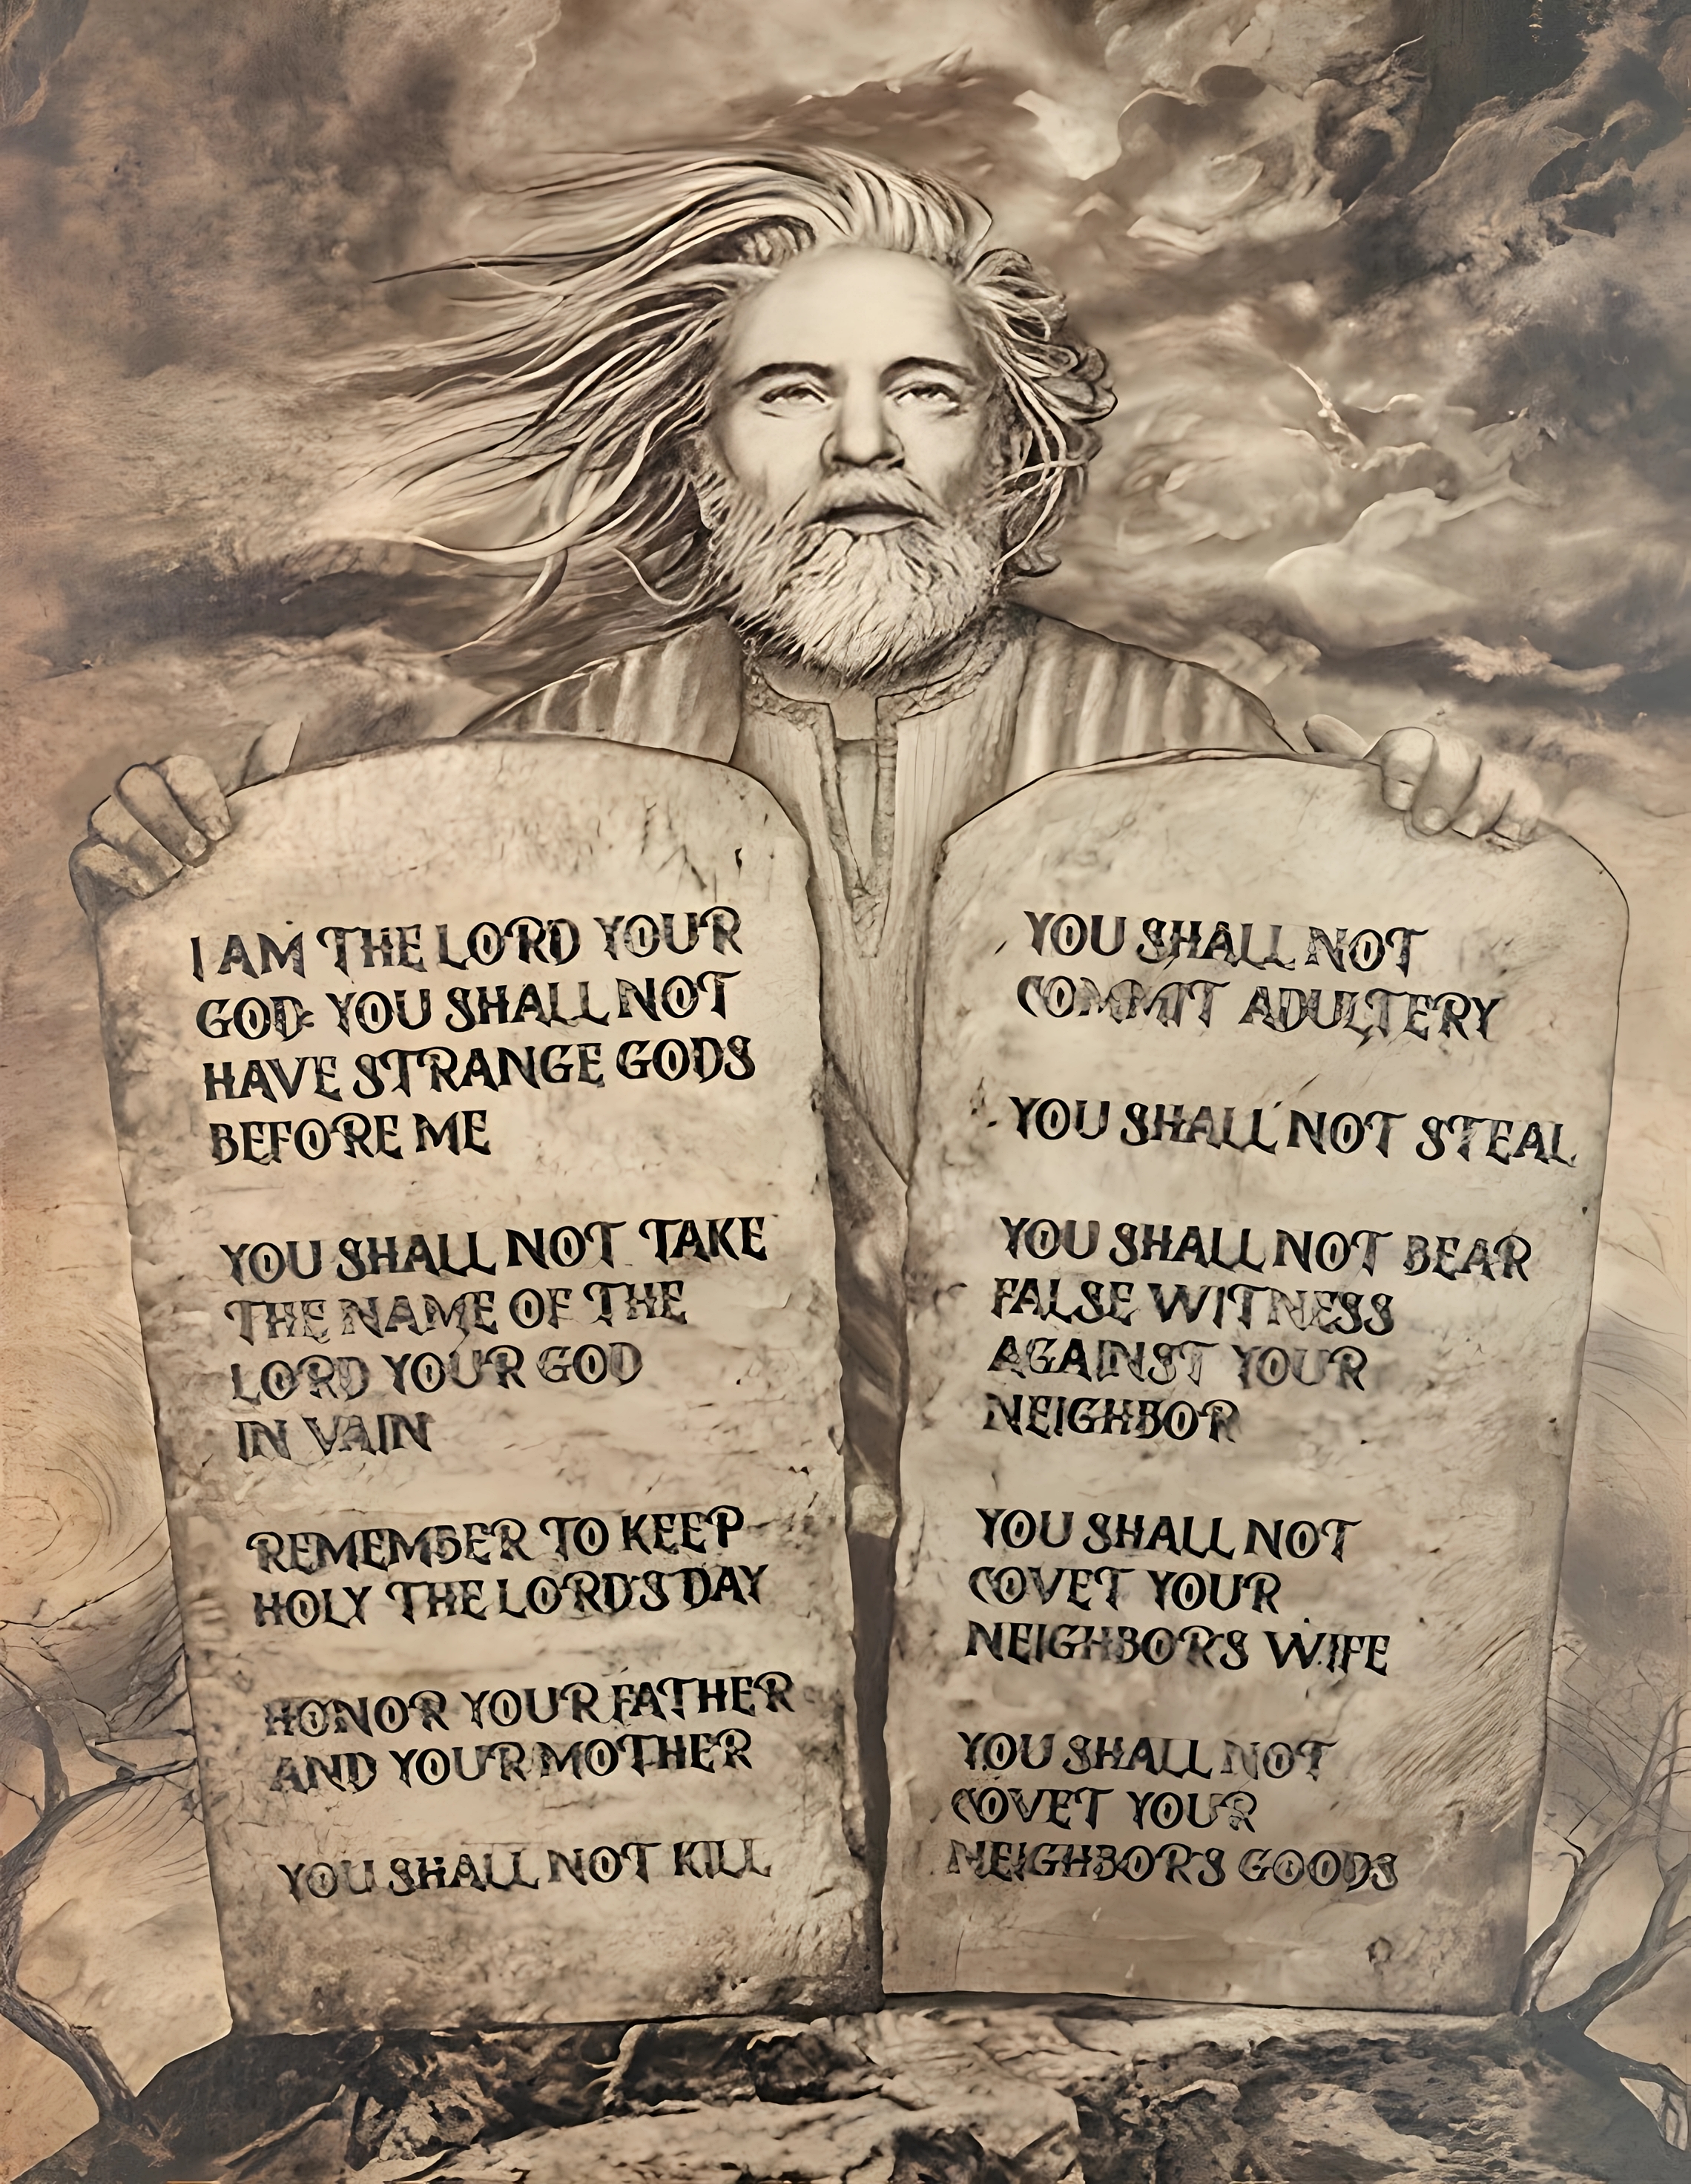 I AM THE LORD YOUR
GOD: YOU SHALL NOT
HAVE STRANGE GODS
BEFORE ME
YOU SHALL NOT TAKE
THE NAME OF THE
LORD YOUR GOD
IN VAIN
REMEMBER TO KEEP
HOLY THE LORD'S DAY
HONOR YOUR FATHER
AND YOUR MOTHER
YOU SHALL NOT KILL
YOU SHALL NOT
COMMIT ADULTERY
YOU SHALL NOT STEAL
YOU SHALL NOT BEAR
FALSE WITNESS
AGAINST YOUR
NEIGHBOR
YOU SHALL NOT
COVET YOUR
NEIGHBOR'S WIFE
YOU SHALL NOT
COVET YOUR
NEIGHBOR'S GOODS